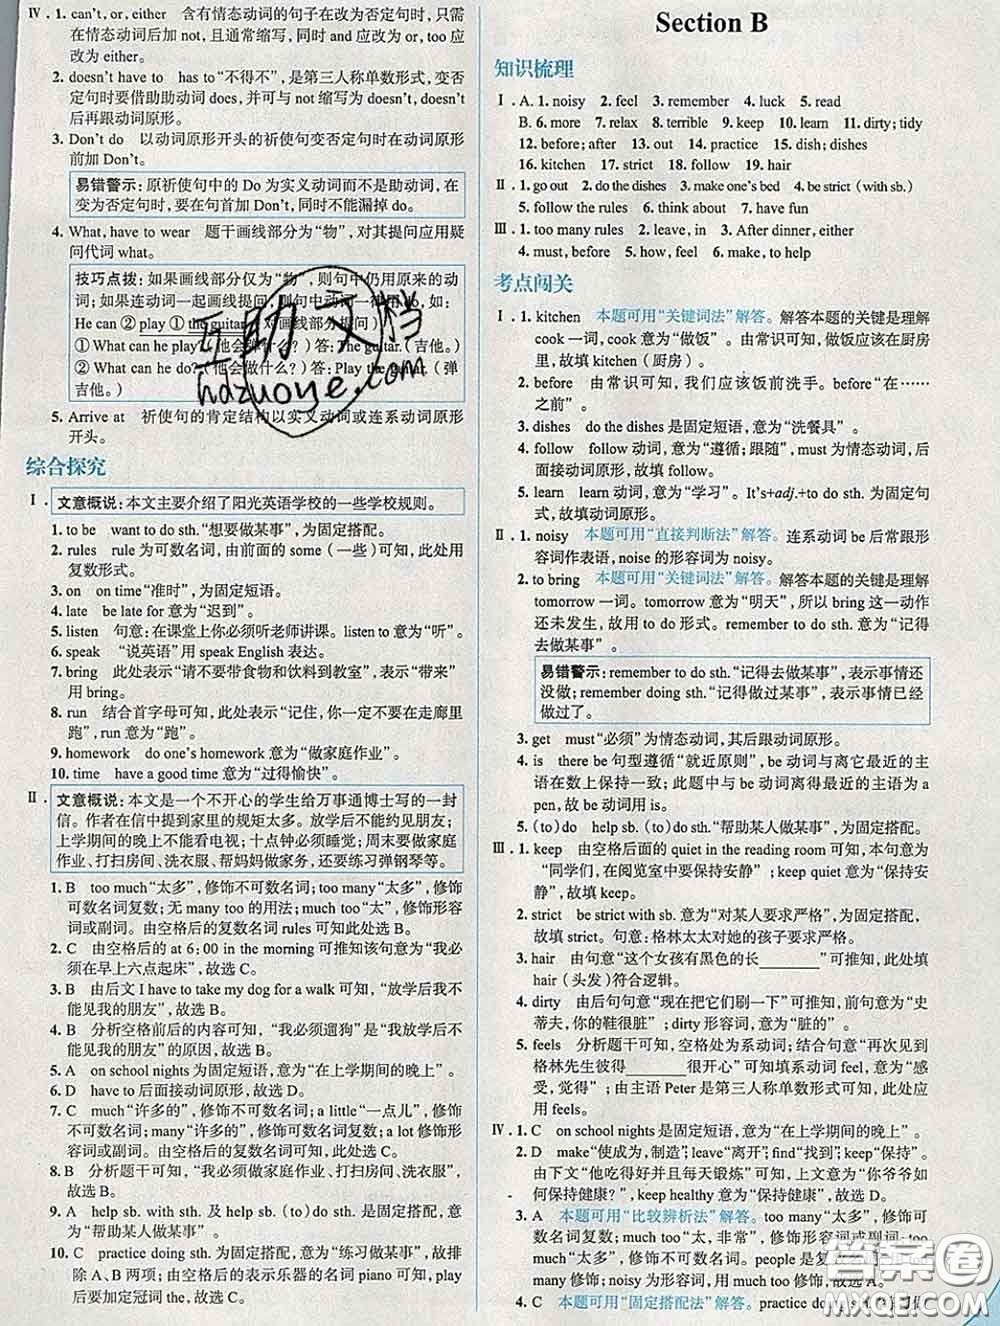 Ⅳ. 1. can't, or, either 含有情态动词的句子在改为否定句时,只需
在情态动词后加 not,且通常缩写,同时 and 应改为 or, too 应
改为 either.
2. doesn't have to has to “不得不”,是第三人称单数形式,变否
定句时要借助助动词 does,并可与 not 缩写为 doesn't, doesn't
后再跟动词原形。
3. Don't do 以动词原形开头的祈使句变否定句时在动词原形
前加 Don't。
易错警示:原祈使句中的 Do 为实义动词而不是助动词,在
变为否定句时,要在句首加 Don't,同时不能漏掉 do。
4. What, have to wear 题干画线部分为“物”,对其提问应用疑
问代词 what。
技巧点拨:如果画线部分仅为“物”,则句中仍用原来的动
词;如果连动词一起画线提问,则句中动词一律用 do,如:
He can ② play ① the guitar.(对画线部分提问)
① What can he play?(他会弹什么?)答:The guitar.(吉他。)
② What can he do?(他会做什么?)答:Play the guitar.(弹
吉他。)
5. Arrive at 祈使句的肯定结构以实义动词或连系动词原形
开头。
综合探究
Ⅰ. 文意概说:本文主要介绍了阳光英语学校的一些学校规则。
1. to be want to do sth. “想要做某事”,为固定搭配。
2. rules rule 为可数名词,由前面的 some(一些)可知,此处用
复数形式。
3. on on time “准时”,为固定短语。
4. late be late for 意为“迟到”。
5. listen 句意:在课堂上你必须听老师讲课。listen to 意为“听”。
6. speak “说英语”用 speak English 表达。
7. bring 此处表示“请不要带食物和饮料到教室”,表示“带来”
用 bring。
8. run 结合首字母可知,此处表示“记住,你一定不要在走廊里
跑”,run 意为“跑”。
9. homework do one's homework 意为“做家庭作业”。
10. time have a good time 意为“过得愉快”。
Ⅱ. 文意概说:本文是一个不开心的学生给万事通博士写的一封
信。作者在信中提到家里的规矩太多。放学后不能约见朋友;
上学期间的晚上不能看电视;十点钟必须睡觉;周末要做家庭
作业、打扫房间、洗衣服、帮妈妈做家务,还要练习弹钢琴等。
1. B too much “太多”,修饰不可数名词;too many “太多”,修饰
可数名词复数;无 many too 的用法;much too “太”,修饰形容
词或副词。由空格后的复数名词 rules 可知此处选 B。
2. C 由空格后的 at 6:00 in the morning 可推知该句意为“我必
须在早上六点起床”,故选 C。
3. B 由后文 I have to take my dog for a walk 可知,“放学后我不
能见我的朋友”,故选 B。
4. B 分析空格前后的内容可知,“我必须遛狗”是“我放学后不
能见我的朋友”的原因,故选 B。
5. A on school nights 为固定短语,意为“在上学期间的晚上”。
6. D have to 后面接动词原形,故选 D。
7. C much “许多的”,修饰不可数名词;a little “一点儿”,修饰不
可数名词;many “许多的”,修饰可数名词复数;a lot 修饰形容
词或动词,故选 C。
8. B 分析题干可知,“我必须做家庭作业、打扫房间、洗衣服”,
故选 B。
9. A help sb. with sth. 及 help sb. (to) do sth. 为固定搭配,意
为“帮助某人做某事”。
10. C practice doing sth. 为固定搭配,意为“练习做某事”,故排
除 A、B 两项;由空格后的表示乐器的名词 piano 可知,play
后要加定冠词 the,故选 C。
Section B
知识梳理
Ⅰ. A. 1. noisy 2. feel 3. remember 4. luck 5. read
B. 6. more 7. relax 8. terrible 9. keep 10. learn 11. dirty; tidy
12. before; after 13. out 14. practice 15. dish; dishes
16. kitchen 17. strict 18. follow 19. hair
Ⅱ. 1. go out 2. do the dishes 3. make one's bed 4. be strict (with sb.)
5. follow the rules 6. think about 7. have fun
Ⅲ. 1. too many rules 2. leave, in 3. After dinner, either
4. must, before 5. how, feel 6. make, to help
考点闯关
Ⅰ. 1. kitchen 本题可用“关键词法”解答。解答本题的关键是理解
cook 一词,cook 意为“做饭”。由常识可知,做饭应该在厨房
里,故填 kitchen(厨房)。
2. before 由常识可知,我们应该饭前洗手。before “在……
之前”。
3. dishes do the dishes 是固定短语,意为“洗餐具”。
4. follow follow 动词,意为“遵循;跟随”,must 为情态动词,后
面接动词原形,故填 follow。
5. learn learn 动词,意为“学习”。It's+adj.+to do sth. 为固定句
式,故填动词原形。
Ⅱ. 1. noisy 本题可用“直接判断法”解答。连系动词 be 后常跟形
容词作表语,noise 的形容词为 noisy。
2. to bring 本题可用“关键词法”解答。解答本题的关键是理解
tomorrow 一词。tomorrow 意为“明天”,所以 bring 这一动作
还未发生,故用 to do 形式。remember to do sth. 意为“记得
去做某事”。
易错警示:remember to do sth. “记得去做某事”,表示事情还
没做;remember doing sth. “记得做过某事”,表示事情已经
做过了。
3. get must “必须”为情态动词,其后跟动词原形。
4. is there be 句型遵循“就近原则”,be 动词与离它最近的主
语在数上保持一致;此题中与 be 动词离得最近的主语为 a
pen,故 be 动词用 is。
5. (to) do help sb. (to) do sth. “帮助某人做某事”,为固定搭配。
Ⅲ. 1. keep 由空格后面的 quiet in the reading room 可知,本句意为
“同学们,在阅览室中要保持安静”;keep quiet 意为“保持安
静”,故填 keep。
2. strict be strict with sb. 意为“对某人要求严格”,为固定搭配,
故填 strict。句意:格林太太对她的孩子要求严格。
3. hair 由句意“这个女孩有黑色的长________”可知,此处填
hair(头发)符合逻辑。
4. dirty 由后句句意“现在把它们刷一下”可推知,前句意为“史
蒂夫,你的鞋很脏”;dirty 形容词,意为“脏的”。
5. feels 分析题干可知,空格处为系动词;结合句意“再次见到
格林先生彼得________很开心”可知填系动词 feel,意为“感
受,觉得”;由主语 Peter 是第三人称单数形式可知,此处应
用 feels。
Ⅳ. 1. C on school nights 是固定短语,意为“在上学期间的晚上”。
2. D make “使成为,制造”;leave “离开”;find “找到”;keep “保持”。
由下文“他吃得好并且每天锻炼”可知,上文意为“你爷爷如
何保持健康?”,keep healthy 意为“保持健康”。
3. A 本题可用“比较辨析法”解答。too many “太多”,修饰可数
名词复数;much too “太,非常”,修饰形容词或副词;too
much “太多”,修饰不可数名词。people 是复
意为“……”;noisy 为形容词,用 much too 修饰,故选 A。
4. C 本题可用“固定搭配法”解答。practice doing sth.
互助文档
hdzuoye.com
答案卷